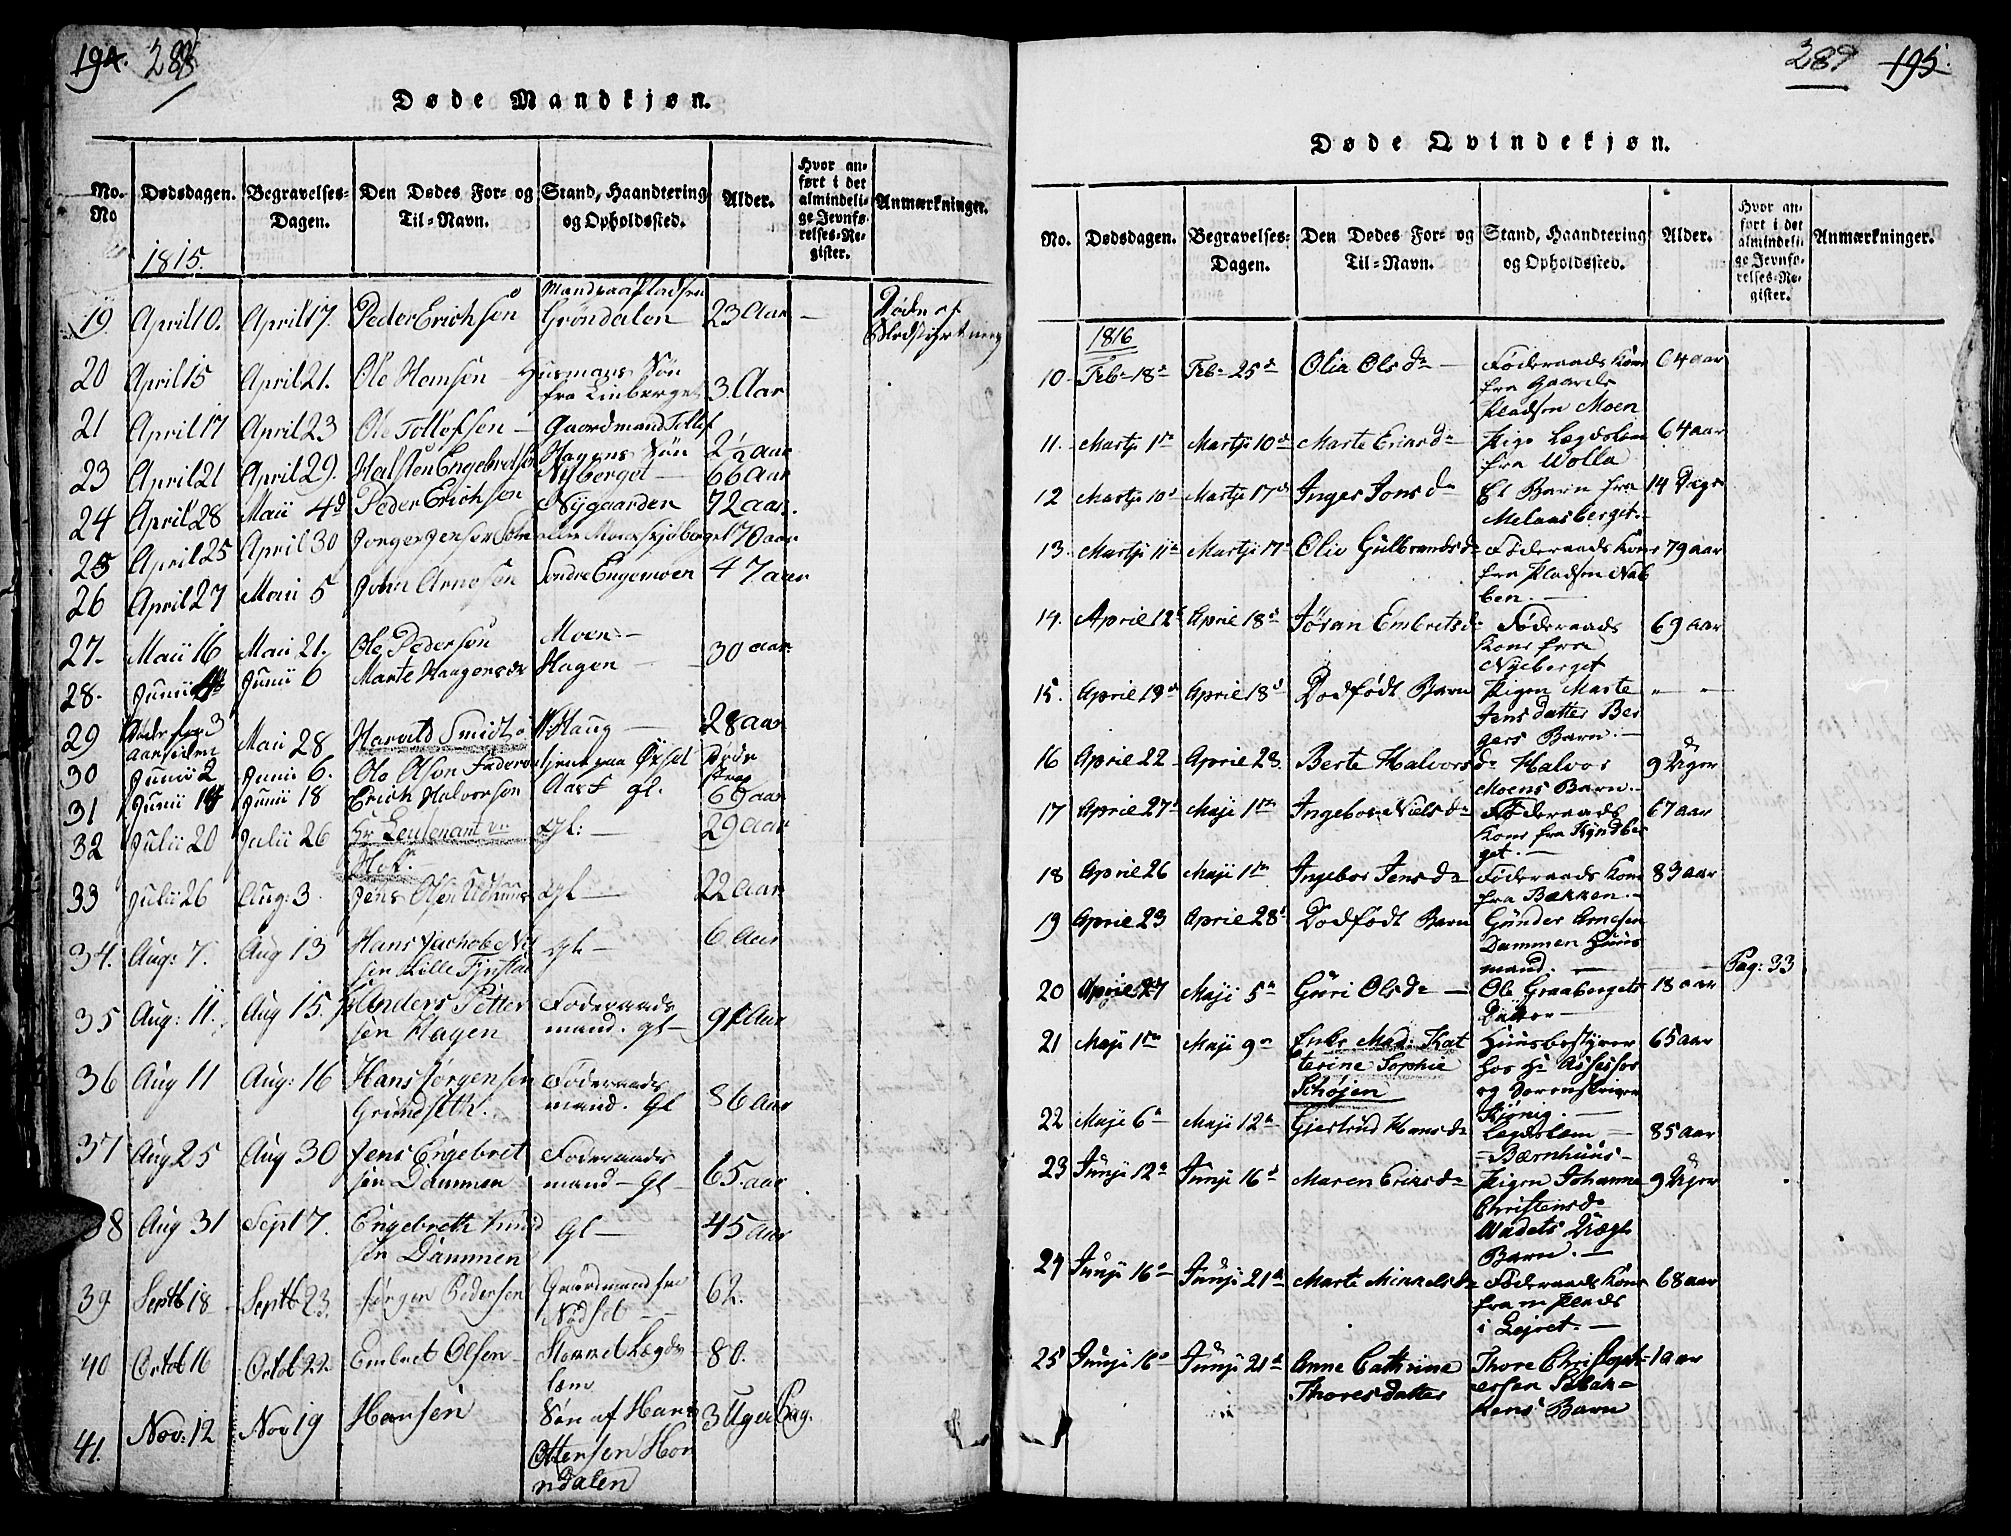 194. 288
Døde Mandkjøn.
No. Dødsdagen. Begravelses-Dagen. Den Dødes For- og Til-Navn. Stand, Haandtering og Opholdssted. Alder. Hvor anført i det almindelige Jevnførelses-Register. Anmærkninger.
No
1815.
19 April 10. April 17. Peder Erichsen Mand paa Pladsen Gröndalen 23 Aar — Döde af Blodstyrtning
20 April 15 April 21. Ole Hansen — Husmans Sön fra Linberget 3. Aar
21 April 17 April 23 Ole Tollefsen — Gaardmand Tollef Hagens Sön 2½ aar
23 April 21 April 29. Halsten Engebretsen Nyberget — 66 Aar
24 April 28 Maii 4d Peder Erichsen Nygaarden 72 aar.
25 April 25 April 30 70 aar
26 April 27 Maii 5 John Arnesen Söndre Engemoen 47 aar
27. Maii 16 Maii 21. Ole Pedersen Moen —
28. Junii Junii 6 Marte Haagensdr Hagen — 30 aar
29 Maii 28 Harald Smidt Haug — 28 aar
30 Junii 2 Junii 6. Ole Olsen
31 Junii 14 Junii 18 Erich Halvorsen Aast gl.
32 Julii 20 Julii 26 Hr Leutenant gl: — 29 aar
33 Julii 26 Aug: 3 Jens Olsen gl — 22 aar
34. Aug: 7. Aug 13 Hans Jachob gl — 6 Aar
35 Aug: 11. Aug 15. Anders Petter
sen Hagen Föderaads
mand. gl — 91 Aar
36 Aug 11 Aug: 16 Hans Jörgensen
Grundseth. Föderaads
mand. gl 86 Aar
37 Aug 25 Aug 30 Jens Engebret
sen Dammen Föderaads
mand — gl — 65. aar
38 Aug 31 Sept 7. Engebreth Amund
sen Dammen gl — 45 aar
39 Septb 18 Septb 23. Jörgen Pedersen Gaardmand fra
Nödset — 62.
40 Octob 16 Octob 22 Embret Olsen — Stemmet Lægds
lem 80.
41. Nov: 12 Nov 19 Hansen Sön af Hans
Ottersen Hon
ndalen 3 Uger Pag.
289 195.
Døde Qvindekjøn.
No. Dødsdagen. Begravelses-Dagen. Den Dødes For- og Til-Navn. Stand, Haandtering og Opholdssted. Alder. Hvor anført i det almindelige Jevnførelses-Register. Anmærkninger.
1816
10. Feb. 18d Feb. 25d Olia Olsda — Föderaads Kone
fra Gaards
Pladsen Moen 64 aar
11. Martji 1ta Martji 10d Marte Ericsda — Pige Lægdslem
fra Wolla 64 aar
12 Martji 10d Martji 17d Inger Jonsda Et Barn fra
Melaasberget. — 14 Dage
13. Martji 11d Martji 17d Olio Gulbrandsda Föderaads Kone
fra Pladsen Nab
ben. — 79 aar
14. April 12d April 18d Jöran Embretsda Föderaads
Kone fra
Nyeberget 69 aar
15. April 13d April 18d Dödfödt Barn Pigen Marte
Jensdatter Ber
gers Barn. — " "
16 April 22 — April 28. Berte Halvorsda Halvor
Moens Barn. — 9 Uger
17 April 27d Maji 1ta Ingebor Nielsda Föderaads
Kone fra Kyndber
get. — 67 aar
18 April 26 Maji 1ta Ingebor Jensda Föderaads Kone
fra Bækken. — 83 aar
19 April 23 April 28d Dödfödt Barn Gunder Arnesen
Dammen Huus
mand. — Pag: 33
20 April 27 Maji 5a Guri Olsda — Ole Graabergets
Datter — 18 aar
21 Maji 1ta Maji 9a Enke Mad: Kat
terine Sophie
Schöjen Huusbestyrer
hos Hr Assessor
og Sorenskriver
65 aar
22 Maji 6a Maji 12a Giertrud Hansda Lægdslem —
Bærnhuus — 85 aar
23 Junji 12a Junji 16d Maren Ericsda Pigen Johanne
Christensda
Wadets Uægte
Barn. — 9 Uger
24 Junji 16a Junji 21d Marte Mikkelsda Föderaads Kone
fra m Plads
i Lejret. — 68 aar
25 Junji 16d Junji 21d Anne Cathrine
Thoresdatter Thore Christoph=
ersen Sibak=
kens Barn 1 aar